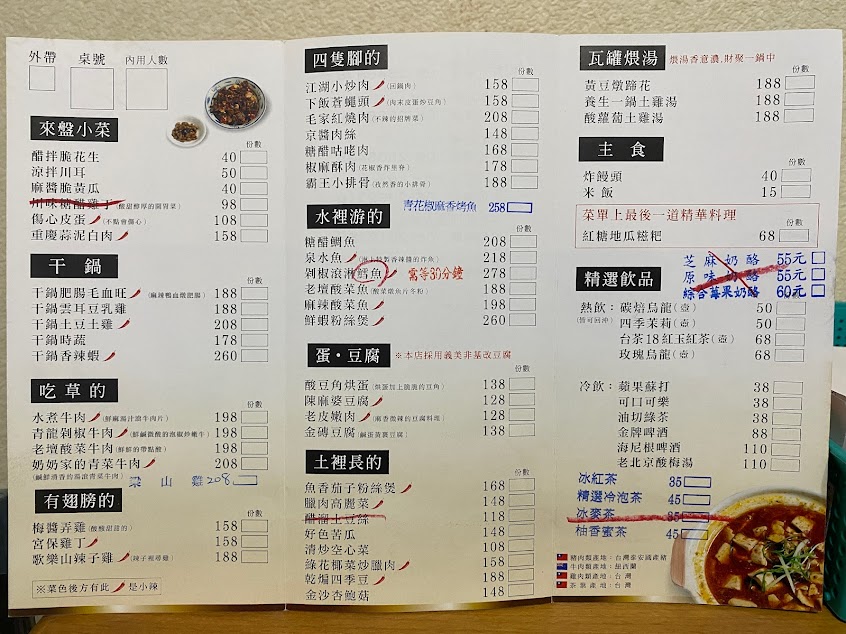 外帶 桌號 內用人數
來盤小菜 份數
醋拌脆花生 40
涼拌川耳 50
麻醬脆黃瓜 40
川味糖醋雞丁(酸甜醇厚的開胃菜) 98
傷心皮蛋(不點會傷心) 108
重慶蒜泥白肉 158
干鍋 份數
干鍋肥腸毛血旺(麻辣鴨血燉肥腸) 188
干鍋雲耳豆乳雞 188
干鍋土豆土雞 208
干鍋時蔬 178
干鍋香辣蝦 260
吃草的 份數
水煮牛肉(鮮麻湯汁滾牛肉片) 198
青龍剁椒牛肉(鮮鹹微酸的泡椒炒嫩牛) 198
老壇酸菜牛肉(鮮鮮的帶點酸) 198
奶奶家的青菜牛肉 208
(鹹鮮滑香的湯滾青菜牛肉)
梁山雞 208
有翅膀的 份數
梅醬弄雞(酸酸甜甜的) 158
宮保雞丁 158
歌樂山辣子雞(辣子裡尋雞) 188
※菜色後方有此 是小辣
四隻腳的 份數
江湖小炒肉(回鍋肉) 158
下飯蒼蠅頭(肉末皮蛋炒豆角) 158
毛家紅燒肉(不辣的招牌菜) 208
京醬肉絲 148
糖醋咕咾肉 168
椒麻酥肉(花椒香炸里脊) 168
霸王小排骨(孜然香的小排骨) 188
水裡游的 青花椒麻香烤魚 258
糖醋鯛魚 208
泉水魚(淋上特製香辣醬的炸魚) 218
剁椒滾淋鱈魚 需等30分鐘 278
老壇酸菜魚(酸菜燉魚片冬粉) 188
麻辣酸菜魚 198
鮮蝦粉絲煲 260
蛋·豆腐 ※本店採用義美非基改豆腐 份數
酸豆角烘蛋(烘蛋加上脆脆的豆角) 138
陳麻婆豆腐 128
老皮嫩肉(鹹香微辣的豆腐料理) 128
金磚豆腐(鹹蛋黃裹豆腐) 138
土裡長的 份數
魚香茄子粉絲煲 168
臘肉高麗菜 148
醋溜土豆絲 118
好色苦瓜 148
清炒空心菜 108
綠花椰菜炒臘肉 158
乾煸四季豆 188
金沙杏鮑菇 148
瓦罐煨湯 煨湯香意濃,財聚一鍋中 份數
黃豆燉蹄花 188
養生一鍋土雞湯 188
酸蘿蔔土雞湯 188
主食 份數
炸饅頭 40
米飯 15
菜單上最後一道精華料理 份數
紅糖地瓜糍粑 68
芝麻奶酪 55元
原味奶酪 55元
綜合莓果奶酪 60元
精選飲品
熱飲:碳焙烏龍(壺) 50
(皆可回沖) 四季茉莉(壺) 50
台茶18紅玉紅茶(壺) 68
玫瑰烏龍(壺) 68
份數
冷飲:蘋果蘇打 38
可口可樂 38
油切綠茶 38
金牌啤酒 88
海尼根啤酒 110
老北京酸梅湯 110
冰紅茶 35
精選冷泡茶 45
冰麥茶 35
柚香蜜茶 45
豬肉類產地:台灣崇安國產豬
牛肉類產地:紐西蘭
雞肉類產地:台灣
茶葉產地:台灣